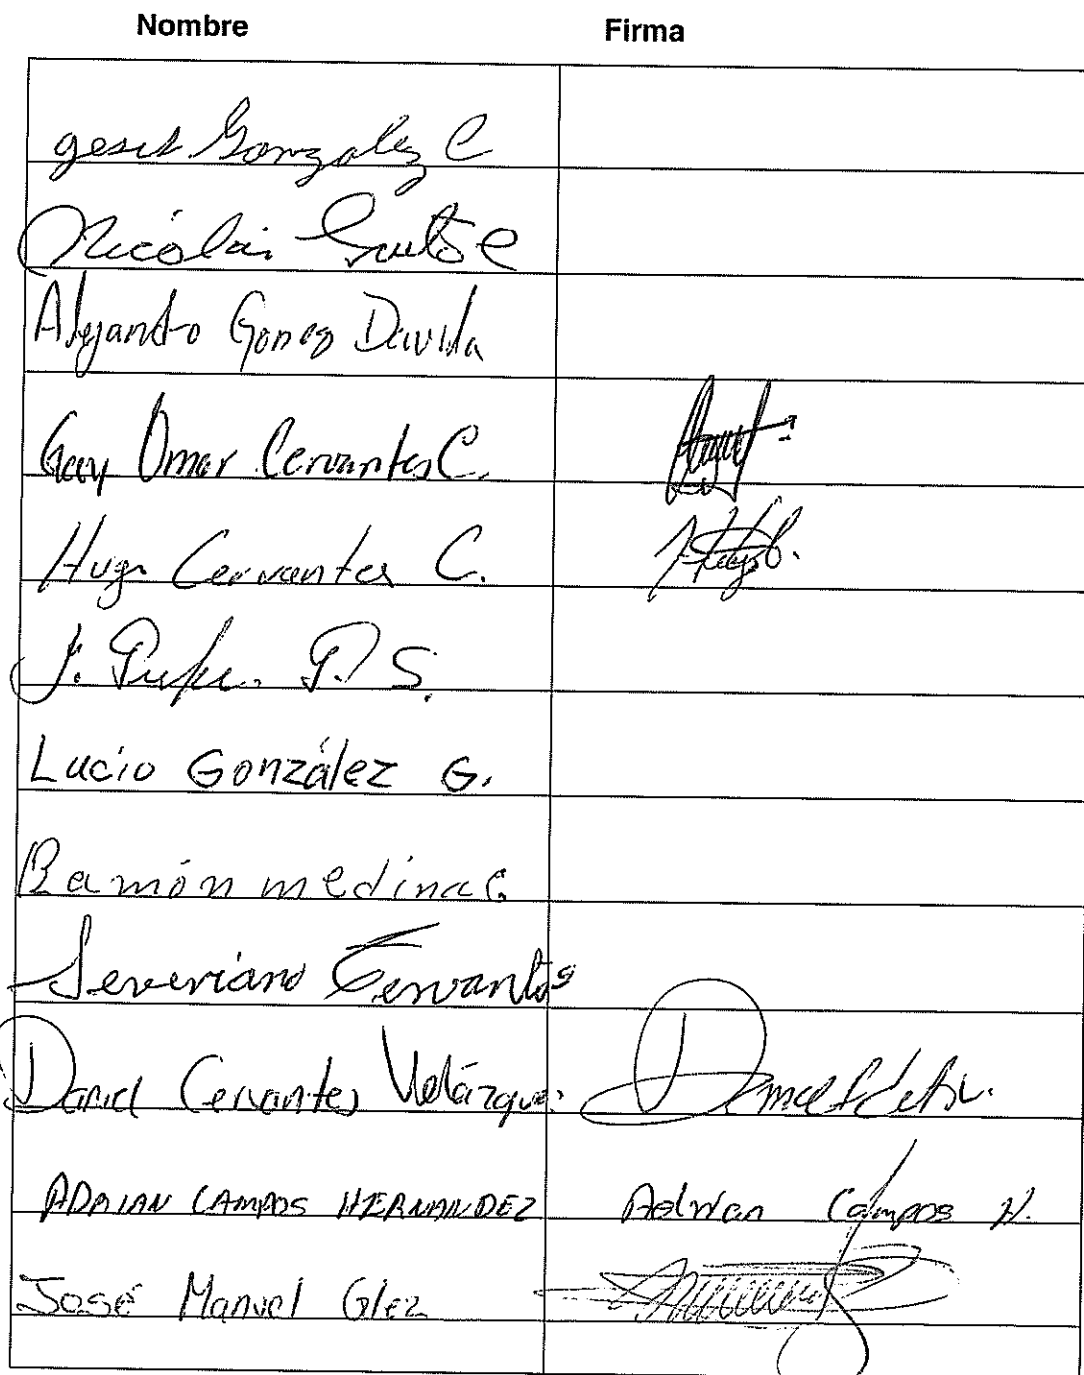 Nombre Firma
gesus Gonzalez C
Nicólas C
Alejandro Gomez Davila
Omar Cervantes C.
Hugo Cervantes C.
J. P. S.
Lucio González G.
Ramón medina C.
Severiano Cervantes
Daniel Cervantes Velázquez
ADRIAN CAMPOS HERNANDEZ Adrian Campos H.
José Manuel Glez